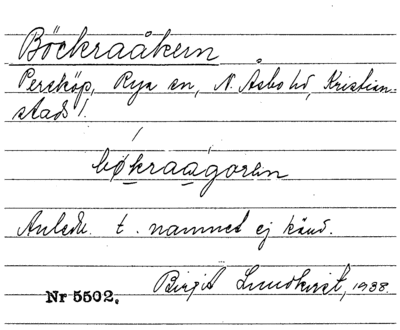 Böckraåkern
Perstöp, Rya sn, N. Åsbo hd, Kristian-
stads l.
bøkraagorən
Anledn. t. namnet ej känd.
Birgit Lundkvist, 1938.
Nr 5502.